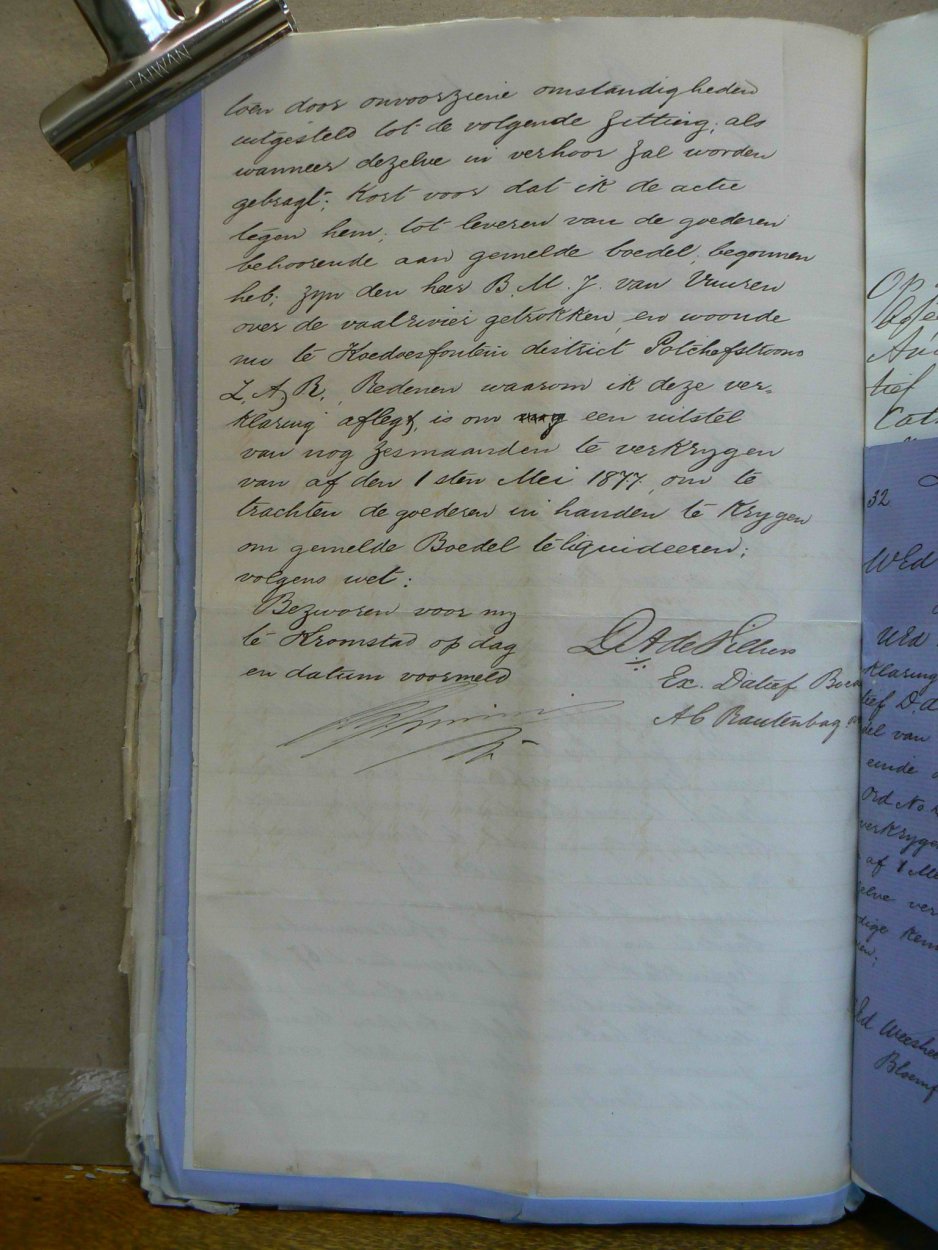 TAIWAN
toen door onvoorziene omstandigheden
uitgesteld tot de volgende zitting, als
wanneer dezelve in verhoor zal worden
gebragt; Kort voor dat ik de actie
tegen hem, tot leveren van de goederen
behoorende aan gemelde boedel, begonnen
heb; zyn den heer B. M. J. van Vuuren
over de vaalrivier getrokken, en woonde
nu te Koedoesfontein district Potchefstroom
Z. A. R., Redenen waarom ik deze ver-
klaring afleg, is om een uitstel
van nog zesmaanden te verkrygen
van af den 1sten Mei 1877, om te
trachten de goederen in handen te Krygen
om gemelde Boedel te liquideeren;
volgens wet:
Bezworen voor my
te Kromstad op dag
en datum voormeld
de Villiers
Ex. Datief Boed
A C Rautenbag
Op
tief
32
Wed
Wed
klaring
tief D. A.
del van
einde
Ord No
verkrygen
af 1 Me
elve ver
dige Ken
Weeshe
Bloemf